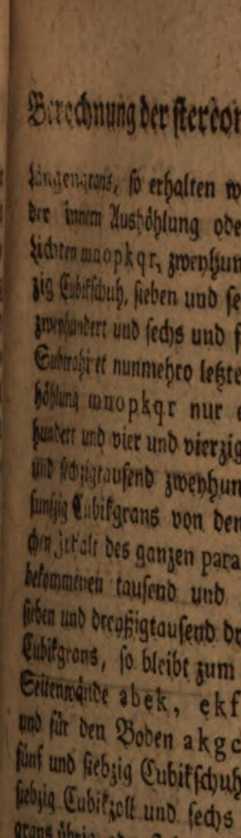 Berechnung der stereo
Längengrans, so erhalten w
der innern Aushöhlung ode
Lichten mnopkqr, zweyhun
zig Cubikschuh, sieben und se
zweyhundert und sechs und f
Subtrahiret nunmehro letzte
höhlung mnopkqr nur
hundert und vier und vierzig
und sechzigtausend zweyhun
funfzig Cubikgrans von den
chen Inhalt des ganzen para
bekommenen tausend und
sieben und dreyßigtausend dr
Cubikgrans, so bleibt zum
Seitenwände abek, ekf
und für den Boden akgc
fünf und siebzig Cubikschuh
siebzig Cubikzoll und sechs
grans übrig